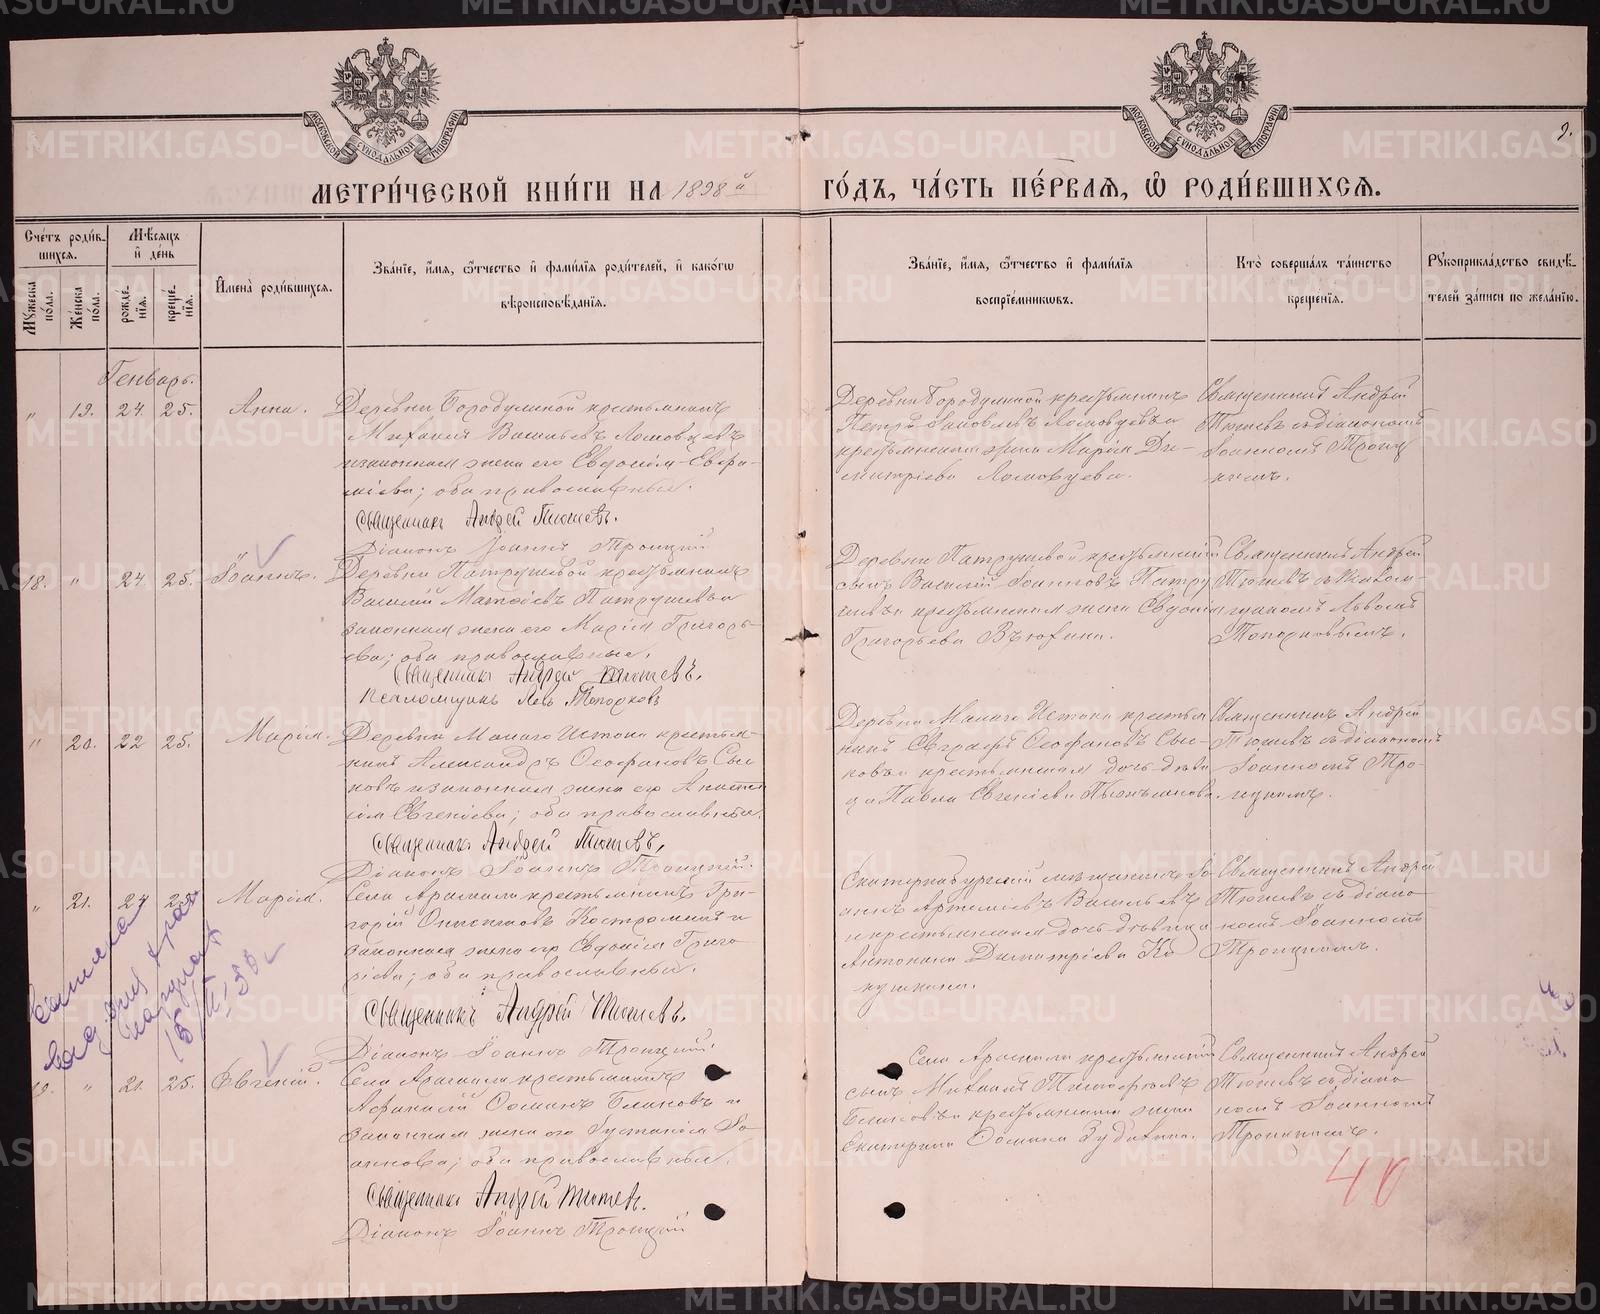 МОСКОВСКОЙ СѴНОДАЛЬНОЙ ТИПОГРАФІИ
МОСКОВСКОЙ СѴНОДАЛЬНОЙ ТИПОГРАФІИ
9.
МЕТРИ́ЧЕСКОЙ КНИ́ГИ НА 1898 й
ГО́ДЪ, ЧА́СТЬ ПЕ́РВАѦ, Ѡ҆ РОДИ́ВШИХСѦ.
Сче́тъ роди́в-
шихсѧ.
Му́жеска по́ла.
Же́нска по́ла.
Мѣ́сѧцъ и҆ де́нь
рожде́-нїѧ.
креще́-нїѧ.
И҆мена̀ роди́вшихсѧ.
Зва́нїе, и҆́мѧ, ѻ҆́тчество и҆ фами́лїѧ роди́телей, и҆ како́гѡ
вѣроисповѣ́данїѧ.
Зва́нїе, и҆́мѧ, ѻ҆́тчество и҆ фами́лїѧ
воспрїе́мникѡвъ.
Кто̀ соверша́лъ та́инство
креще́нїѧ.
Рꙋкоприкла́дство свидѣ́-
телей за́писи по жела́нїю.
Генварь.
" 19. 24. 25. Анна.
Деревни Бородулиной крестьянинъ
Михаилъ Васильевъ Ломовцевъ
и законная жена его Евдокія Евфи-
міева; оба православные.
Священникъ Андрей Тютевъ.
Діаконъ Іоаннъ Троицкій
Деревни Бородулиной крестьянинъ
Петръ Ломовцевъ и
крестьянская жена Марія Ди-
митріева Ломовцева.
Священникъ Андрей
Тютевъ съ діакономъ
Іоанномъ Троиц
кимъ.
18. " 24. 25. Іоаннъ.
Деревни Патрушевой крестьянинъ
Василій Матѳіевъ Патрушевъ и
законная жена его Марія Григорь-
ева; оба православные.
Священникъ Андрей Тютевъ.
Псаломщикъ Левъ Топорковъ
Деревни Патрушевой крестьянскій
сынъ Василій Іоанновъ Патру
шевъ и крестьянская жена Евдокія
Григорьева Вьюхина.
Священникъ Андрей
Тютевъ съ псалом-
щикомъ Львомъ
Топорковымъ.
" 20. 22 25. Марія.
Деревни Малаго Истока крестья-
нинъ Александръ Ѳеофановъ Сы
ковъ и законная жена его Анаста
сія Евгеніева; оба православные.
Священникъ Андрей Тютевъ.
Діаконъ Іоаннъ Троицкій.
Деревни Малаго Истока крестья
нинъ Евграфъ Ѳеофановъ Сы
ковъ и крестьянская дочь дѣви
ца Павла Евгеніева
Священникъ Андрей
Тютевъ съ діакономъ
Іоанномъ Тро-
ицкимъ.
" 21. 24 25. Марія.
Села Арамили крестьянинъ Гри-
горій Онисимовъ Костроминъ и
законная жена его Евдокія Григо-
ріева; оба православные.
Священникъ Андрей Тютевъ.
Діаконъ Іоаннъ Троицкій.
Екатеринбургскій мѣщанинъ Іо
аннъ Артемьевъ Васильевъ
и крестьянская дочь дѣвица
Антонина Димитріева Ка
Священникъ Андрей
Тютевъ съ діако
номъ Іоанномъ
Троицкимъ.
19. " 21. 25. Евгеній.
Села Арамили крестьянинъ
Аѳанасій Ѳоминъ Блиновъ и
законная жена его Іустинія Іо
аннова; оба православные.
Священникъ Андрей Тютевъ.
Діаконъ Іоаннъ Троицкій
Села Арамили крестьянскій
сынъ Михаилъ Тимофеевъ
Блиновъ и крестьянская жена
Екатерина Ѳомина Зудихина.
Священникъ Андрей
Тютевъ съ діако
номъ Іоанномъ
Троицкимъ.
40
METRIKI.GASO-URAL.RU